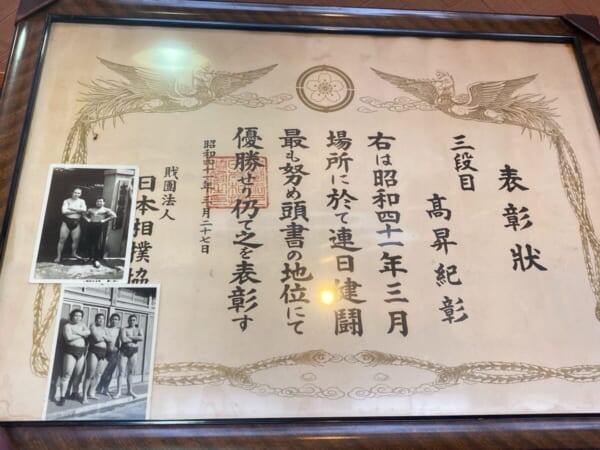 表彰状
三段目
高昇紀彰
右は昭和四十一年三月
場所に於て連日健闘
最も努め頭書の地位にて
優勝せり仍て之を表彰す
昭和四十一年三月二十七日
財團法人
日本相撲協